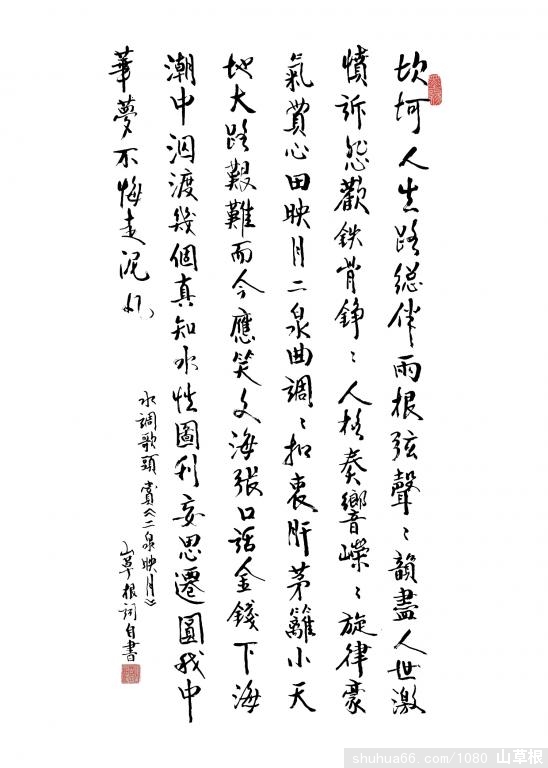 坎坷人生路總伴兩根弦聲〻韻盡人世激
憤訴怨歡鉄骨錚〻人格奏響嶸〻旋律豪
氣貫心田映月二泉曲調〻扣衷肝茅籬小天
地大路艱難而今應笑文海張口話金錢下海
潮中泅渡幾個真知水性圖利妄思遷圓我中
華夢不悔走泥丸
水調歌頭 賞《二泉映月》
山草根詞自書
shuhua66.com/1080 山草根